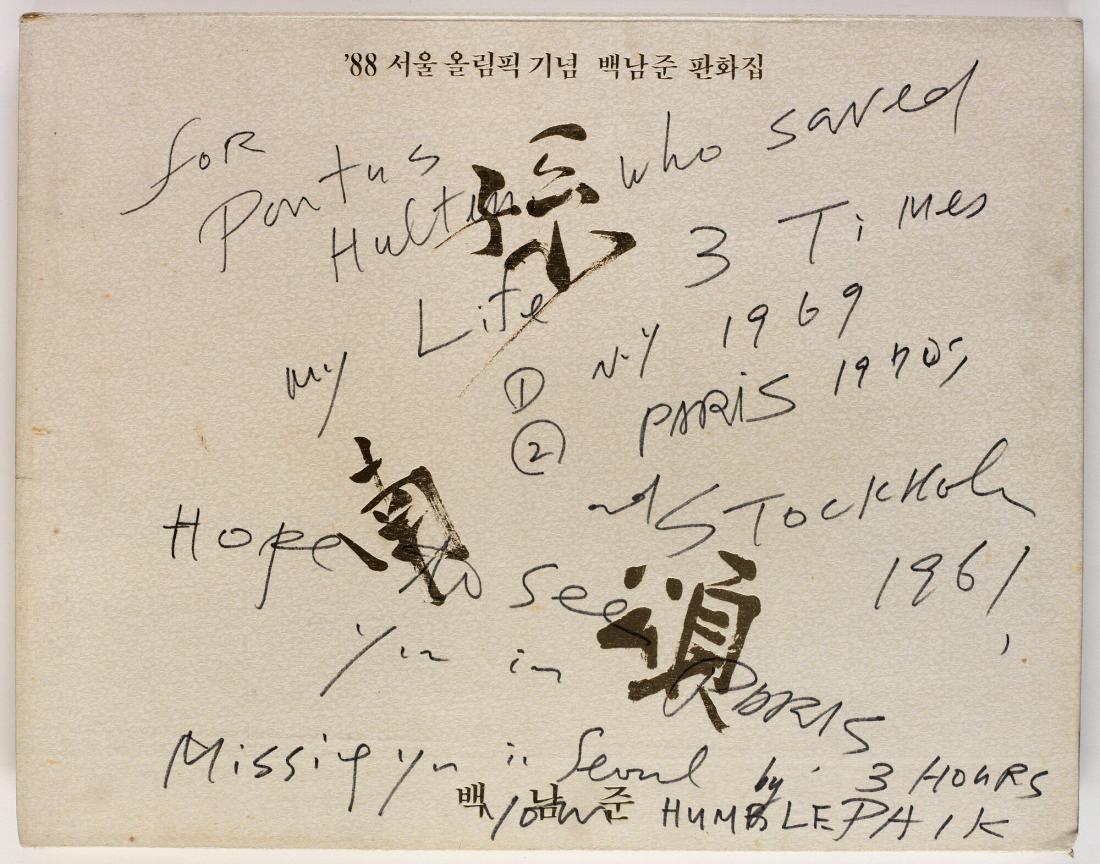 '88 서울 올림픽 기념 백남준 판화집
for Pontus Hulten who saved
my Life 3 Times
① N.Y 1969
② PARIS 1970s,
and STOCKHOLM
1961,
Hope to see
you in PARIS
Missing you in Seoul by 3 HOURS
your HUMBLE PAIK
南
백 남 준